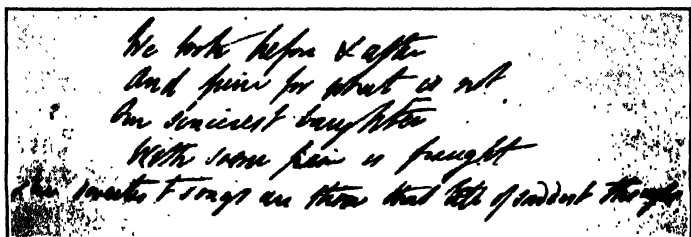 We look before & after
And pine for what is not
Our sincerest laughter
With some pain is fraught
Our sweetest songs are those that tell of saddest thought